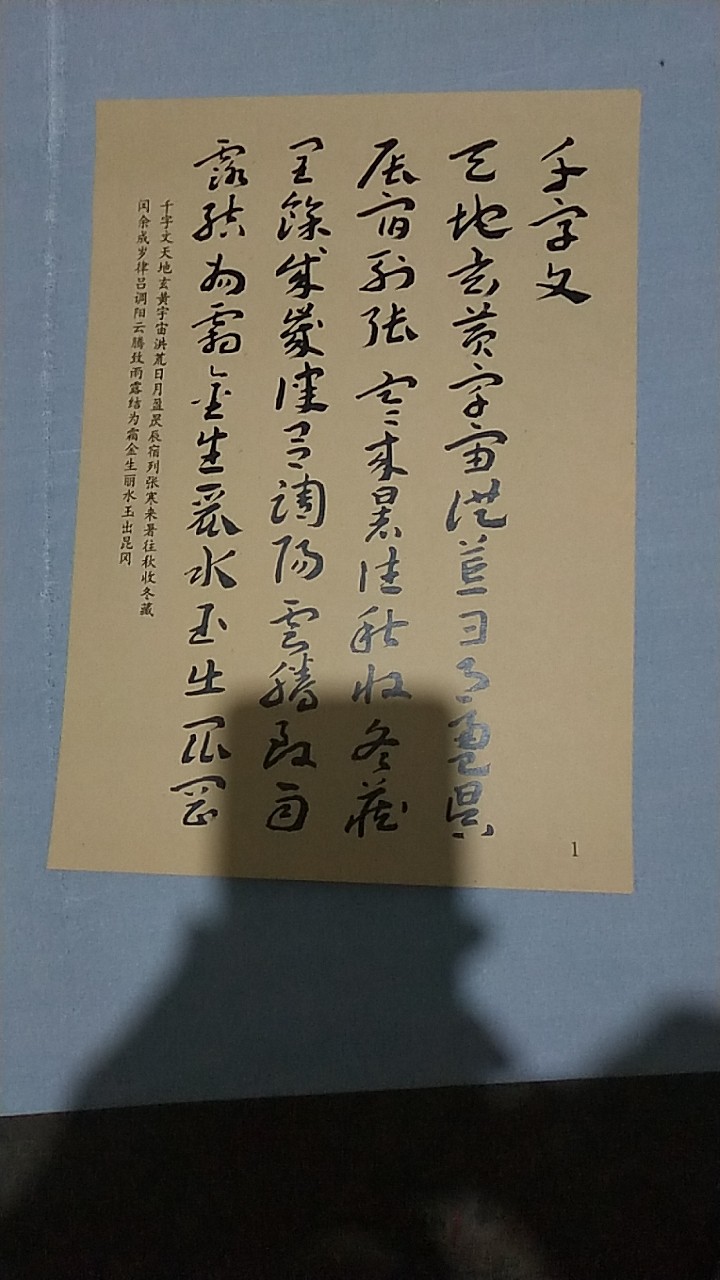 千字文
天地玄黄宇宙洪荒日月盈昃
辰宿列張寒来暑往秋收冬藏
閏餘成歲律呂調陽雲騰致雨
露結為霜金生麗水玉出崑岡
千字文天地玄黄宇宙洪荒日月盈昃辰宿列张寒来暑往秋收冬藏
闰余成岁律吕调阳云腾致雨露结为霜金生丽水玉出昆冈
1